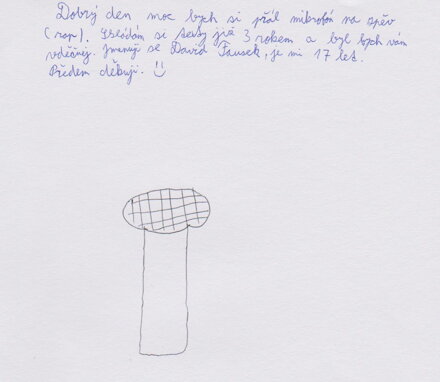 Dobrý den moc bych si přál mikrofón na zpěv
(rap). Skládám si texty již 3 rokem a byl bych vám
vděčnej. Jmenuji se David Fausek, je mi 17 let.
Předem děkuji.